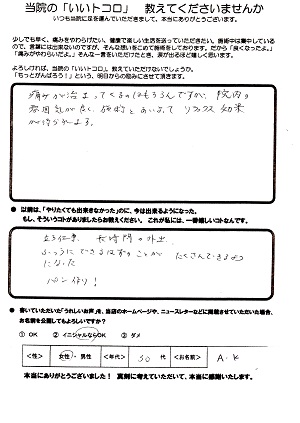 当院の「いいトコロ」 教えてくださいませんか
いつも当院に足を運んでいただきまして、本当にありがとうございます。
少しでも早く、痛みをやわらげたい、健康で楽しい生活を送っていただきたい。施術中は集中しているので、
言葉には出来ないのですが、そんな想いをこめて施術をしております。だから「良くなったよ。」
「痛みがやわらいだよ。」そんな一言をいただけたとき、涙が出るほど嬉しく思います。
よろしければ、当院の「いいトコロ」教えていただけないでしょうか。
「もっとがんばろう！」という、明日からの励みにさせて頂きます。
痛みが治まってくるのはもちろんですが、院内の
雰囲気が良く、施術とあいまって リラックス効果
が
● 以前は、「やりたくても出来なかった」のに、今は出来るようになった。
もし、そういうコトがありましたらお教えください。これが私には、一番嬉しいコトなんです。
立ち仕事、長時間の外出
ふつうにできるはずのことが たくさんできる
になった
パン作り！
● 書いていただいた「うれしいお声」を、当店のホームページや、ニュースレターなどに掲載させていただいた場合、
お名前を公開してもよろしいですか？
① OK ② イニシャルならOK ③ ダメ
＜性＞ 女性・男性 ＜年代＞ 50 代 ＜お名前＞ A.K
本当にありがとうございました！ 真剣に考えていただいて、本当に感謝いたします。